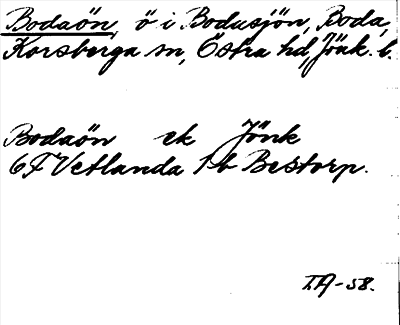 Bodaön, ö i Bodasjön, Boda,
Korsberga sn, Östra hd, Jönk. l.
Bodaön ek Jönk
6F Vetlanda 1b Bestorp.
I.A-58.